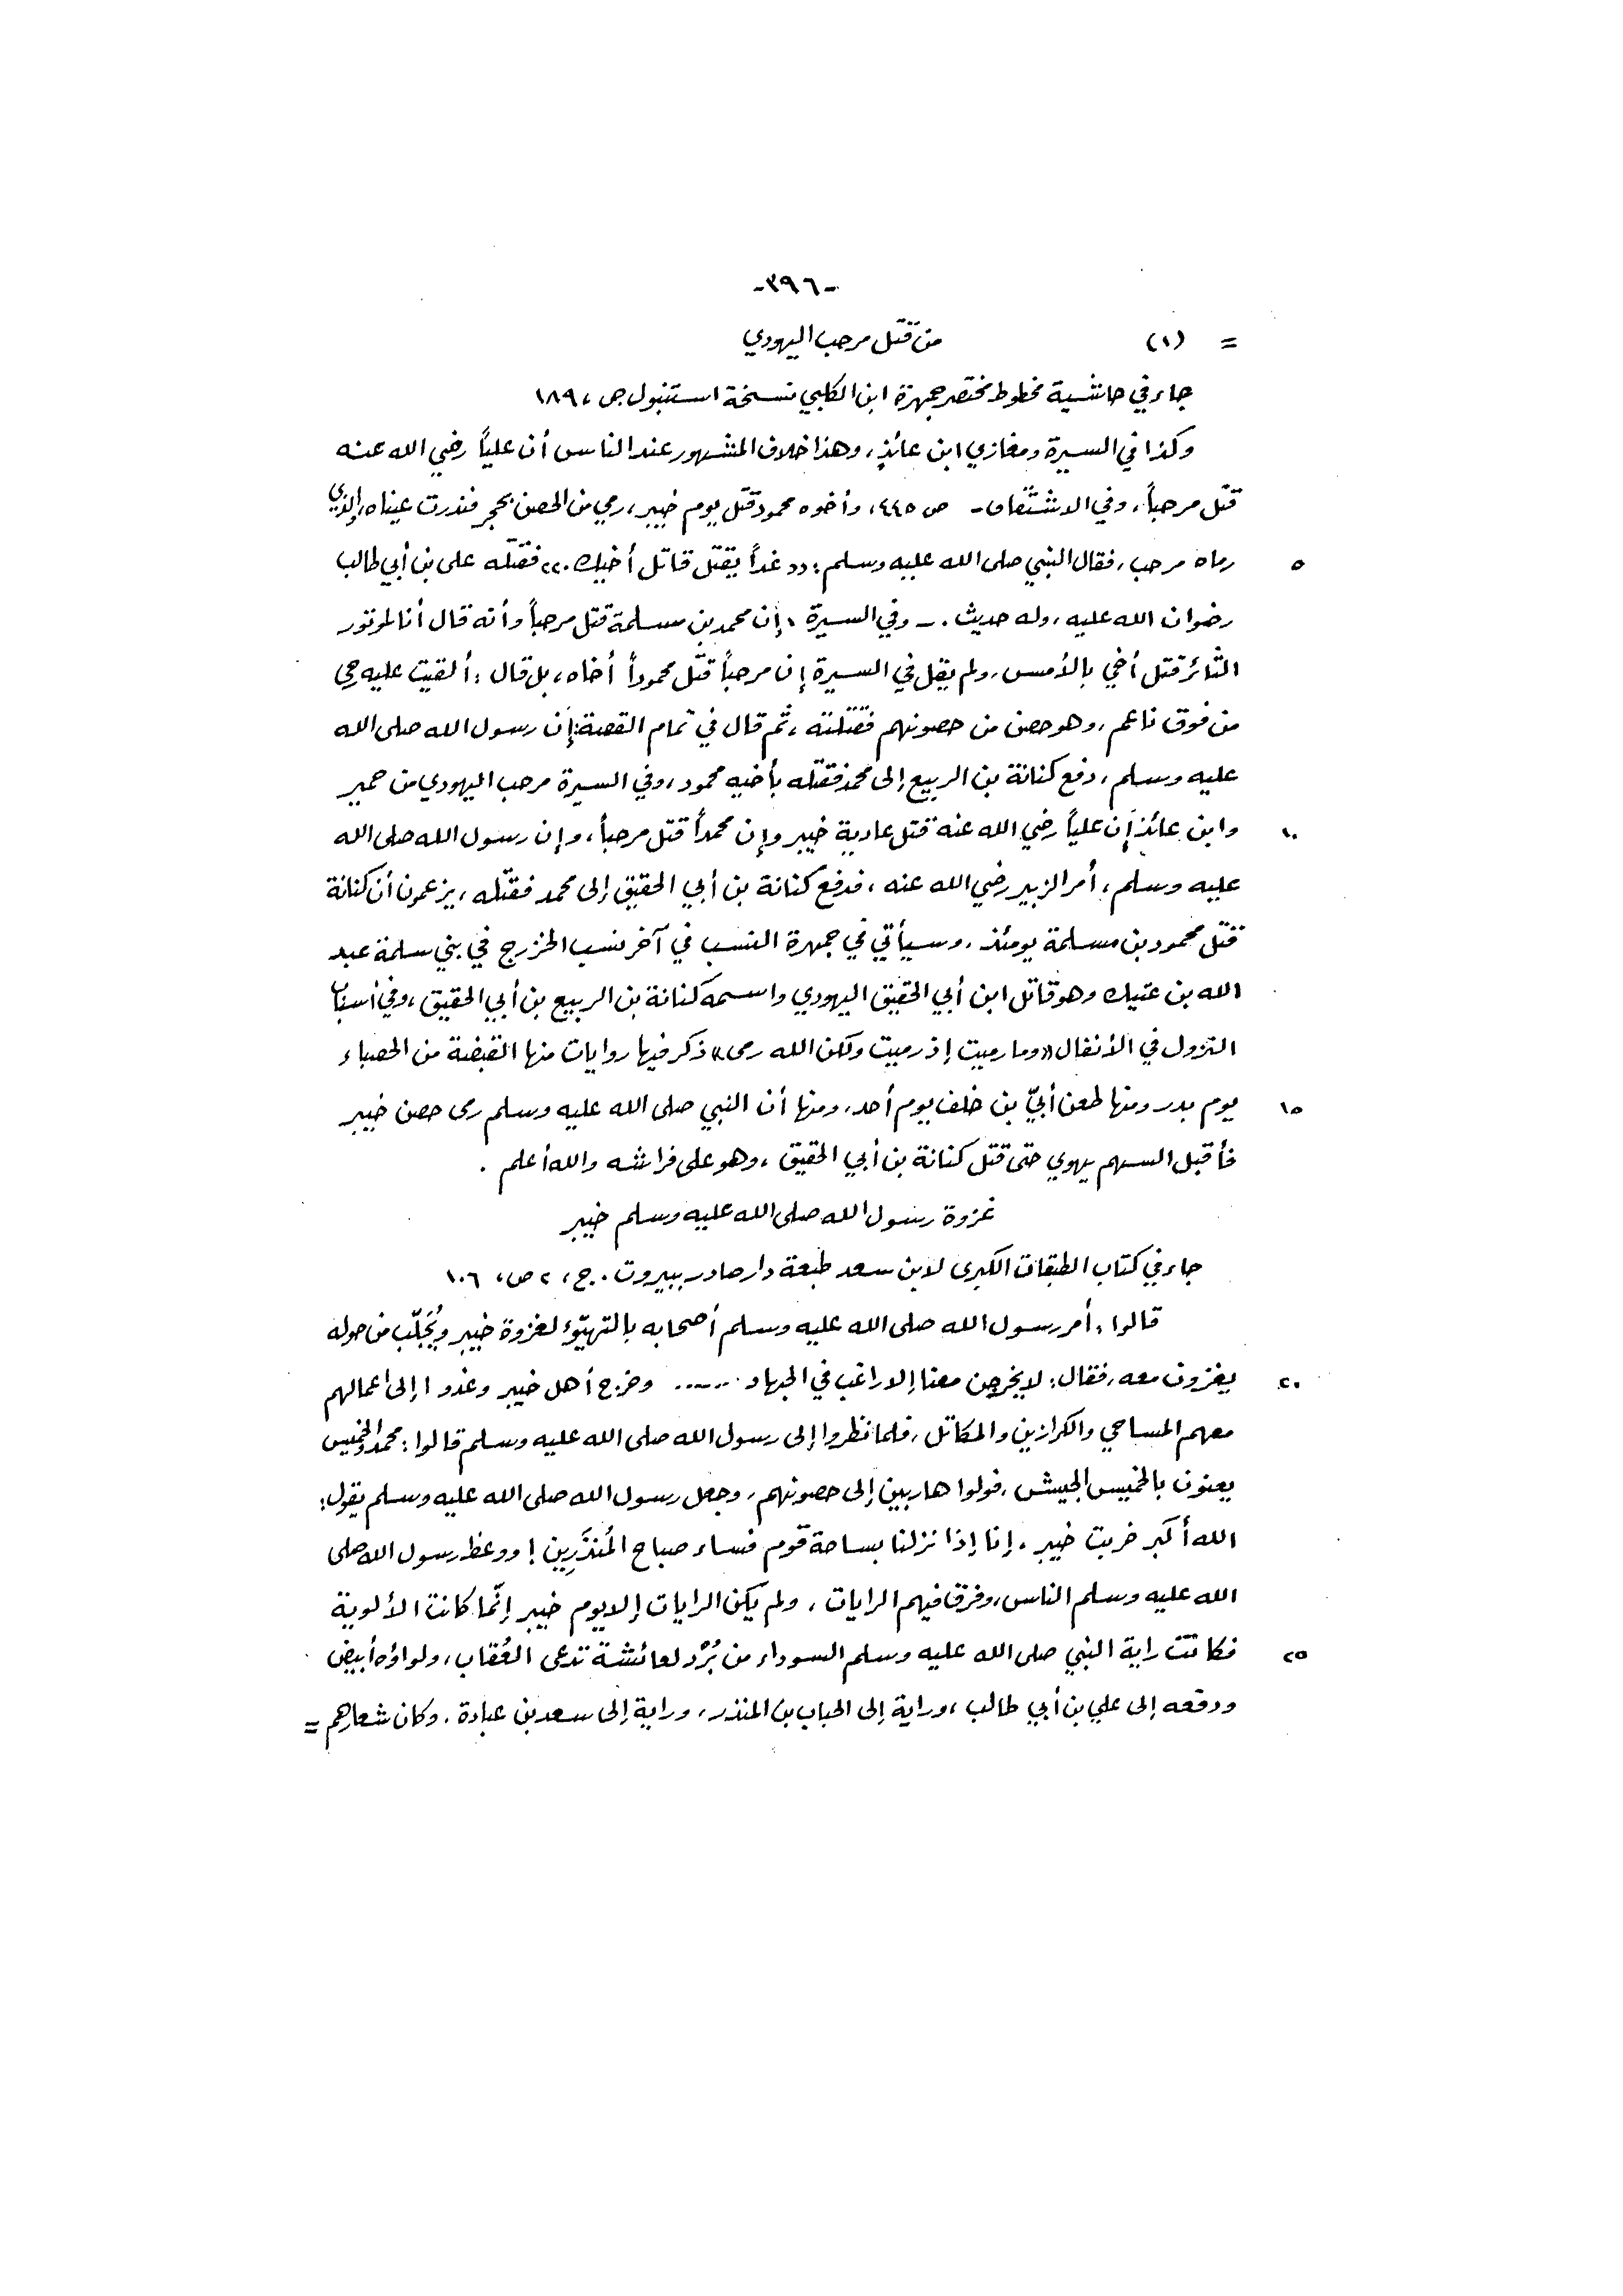 -٣٩٦-
= (١) من قتل مرحب اليهودي
جاء في حاشية مخطوط مختصر جمهرة ابن الكلبي نسخة استنبول ص، ١٨٩
وكذا في السيرة ومغازي ابن عائذٍ، وهذا خلاف المشهور عند الناس أن علياً رضي الله عنه
قتل مرحباً، وفي الاشتقاق - ص ٤٤٥، وأخوه محمود قتل يوم خيبر، رمي من الحصن بحجر فندرت عيناه، والذي
٥ رماه مرحب، فقال النبي صلى الله عليه وسلم: «غداً يقتل قاتل أخيك.» فقتله علي بن أبي طالب
رضوان الله عليه، وله حديث. - وفي السيرة، إن محمد بن مسلمة قتل مرحباً وأنه قال أنا لموتور
الثائر قتل أخي بالأمس، ولم يقل في السيرة إن مرحباً قتل محموداً أخاه، بل قال: ألقيت عليه رحى
من فوق ناعم، وهو حصن من حصونهم فقتلته، ثم قال في تمام القصة: إن رسول الله صلى الله
عليه وسلم، دفع كنانة بن الربيع إلى محمد فقتله بأخيه محمود، وفي السيرة مرحب اليهودي من حمير
١٠ وابن عائذ إن علياً رضي الله عنه قتل عادية خيبر وإن محمداً قتل مرحباً، وإن رسول الله صلى الله
عليه وسلم، أمر الزبير رضي الله عنه، فدفع كنانة بن أبي الحقيق إلى محمد فقتله، يزعمون أن كنانة
قتل محمود بن مسلمة يومئذ، وسيأتي في جمهرة النسب في آخر نسب الخزرج في بني سلمة عبد
الله بن عتيك وهو قاتل ابن أبي الحقيق اليهودي واسمه كنانة بن الربيع بن أبي الحقيق، وفي أسباب
النزول في الأنفال «وما رميت إذ رميت ولكن الله رمى» ذكر فيها روايات منها القبضة من الحصباء
١٥ يوم بدر ومنها طعن أبيّ بن خلف يوم أحد، ومنها أن النبي صلى الله عليه وسلم رمى حصن خيبر
فأقبل السهم يهوي حتى قتل كنانة بن أبي الحقيق، وهو على فراشه والله أعلم.
غزوة رسول الله صلى الله عليه وسلم خيبر
جاء في كتاب الطبقات الكبرى لابن سعد طبعة دار صادر ببيروت. ج، ٢ ص، ١٠٦
قالوا، أمر رسول الله صلى الله عليه وسلم أصحابه بالتهيّؤ لغزوة خيبر ويُجَلّب من حوله
٢٠ يغزون معه، فقال: لا يخرجن معنا إلا راغب في الجهاد ...... وخرج أهل خيبر وغدوا إلى أعمالهم
معهم المساحي والكرازين والمكاتل، فلما نظروا إلى رسول الله صلى الله عليه وسلم قالوا: محمد والخميس
يعنون بالخميس الجيش، فولوا هاربين إلى حصونهم، وجعل رسول الله صلى الله عليه وسلم يقول:
الله أكبر خربت خيبر، إنا إذا نزلنا بساحة قوم فساء صباح المُنذَرِين! ووعظ رسول الله صلى
الله عليه وسلم الناس، وفرق فيهم الرايات، ولم يكن الرايات إلا يوم خيبر إنّما كانت الألوية
٢٥ فكانت راية النبي صلى الله عليه وسلم السوداء من بُرْد لعائشة تدعى العُقاب، ولواؤه أبيض
ودفعه إلى علي بن أبي طالب، وراية إلى الحباب بن المنذر، وراية إلى سعد بن عبادة، وكان شعارهم =